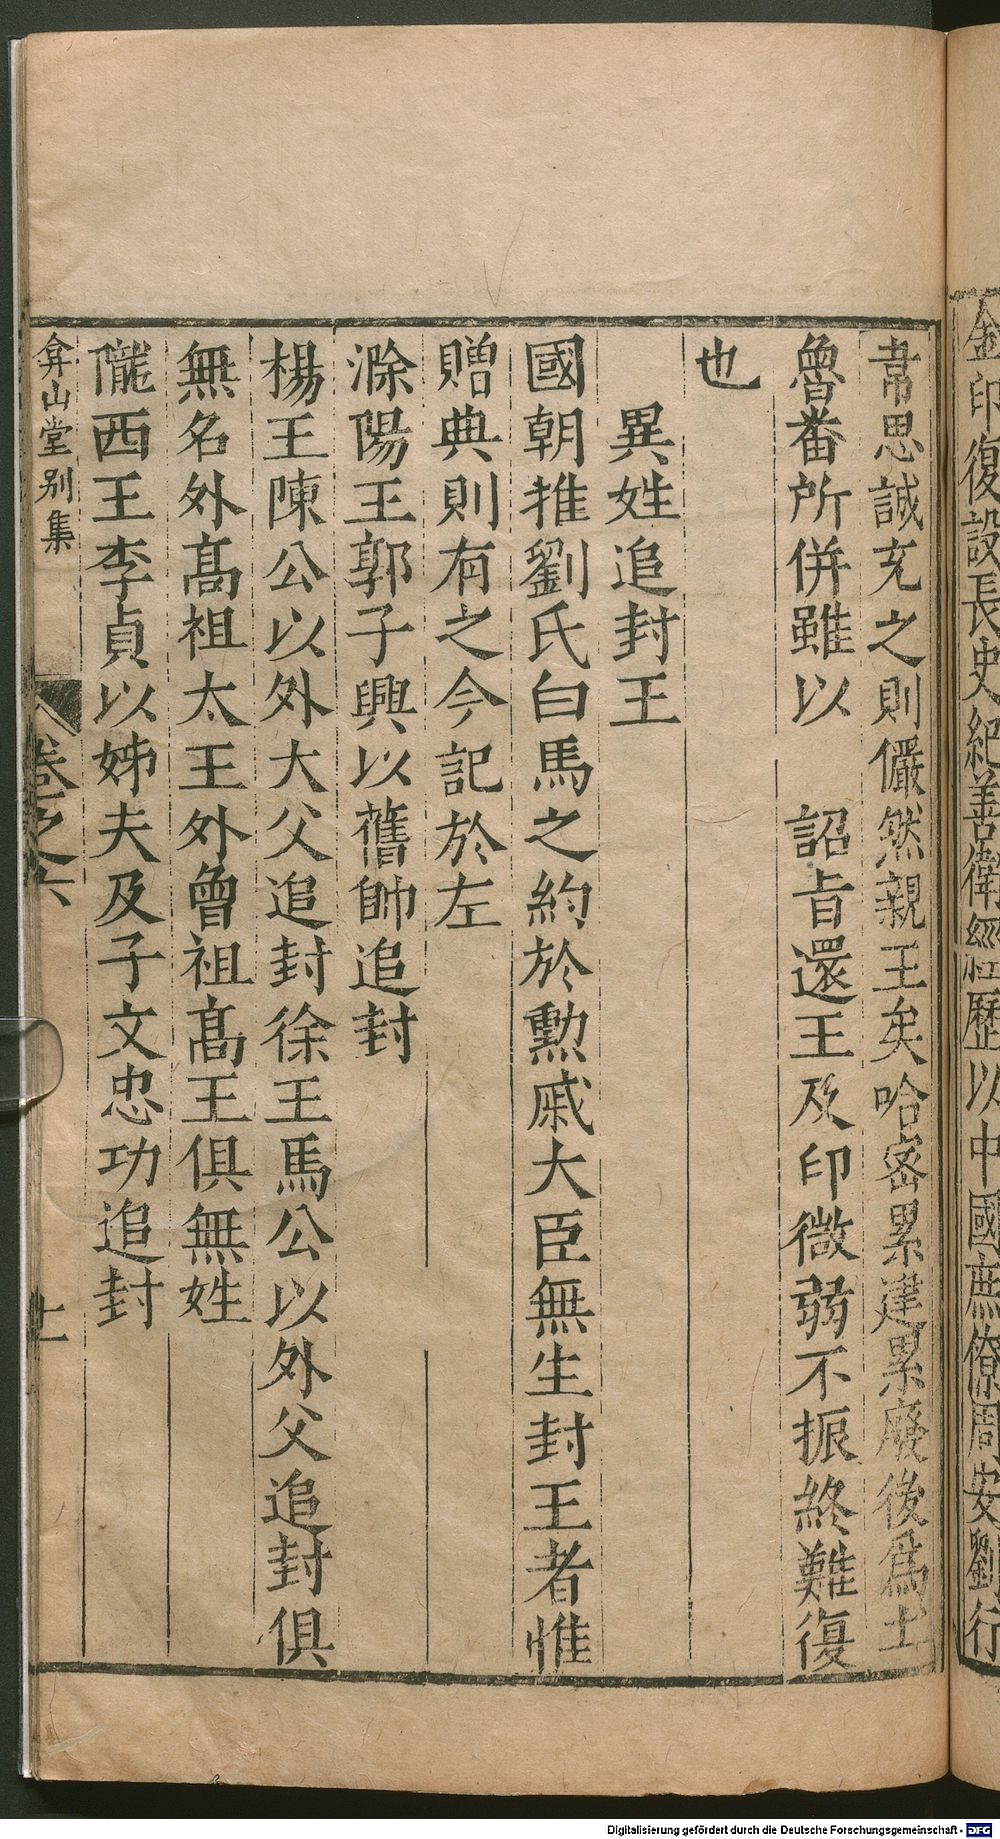 金印復設長史紀善衛經歷以中國庶僚周安劉行
韋思誠充之則儼然親王矣哈密累建累廢後為土
魯番所併雖以 詔旨還王及印微弱不振終難復
也
異姓追封王
國朝推劉氏白馬之約於勲戚大臣無生封王者惟
贈典則有之今記於左
滁陽王郭子興以舊帥追封
楊王陳公以外大父追封徐王馬公以外父追封俱
無名外髙祖太王外曾祖髙王俱無姓
隴西王李貞以姊夫及子文忠功追封
弇山堂别集 卷之六 十一
Digitalisierung gefördert durch die Deutsche Forschungsgemeinschaft - DFG